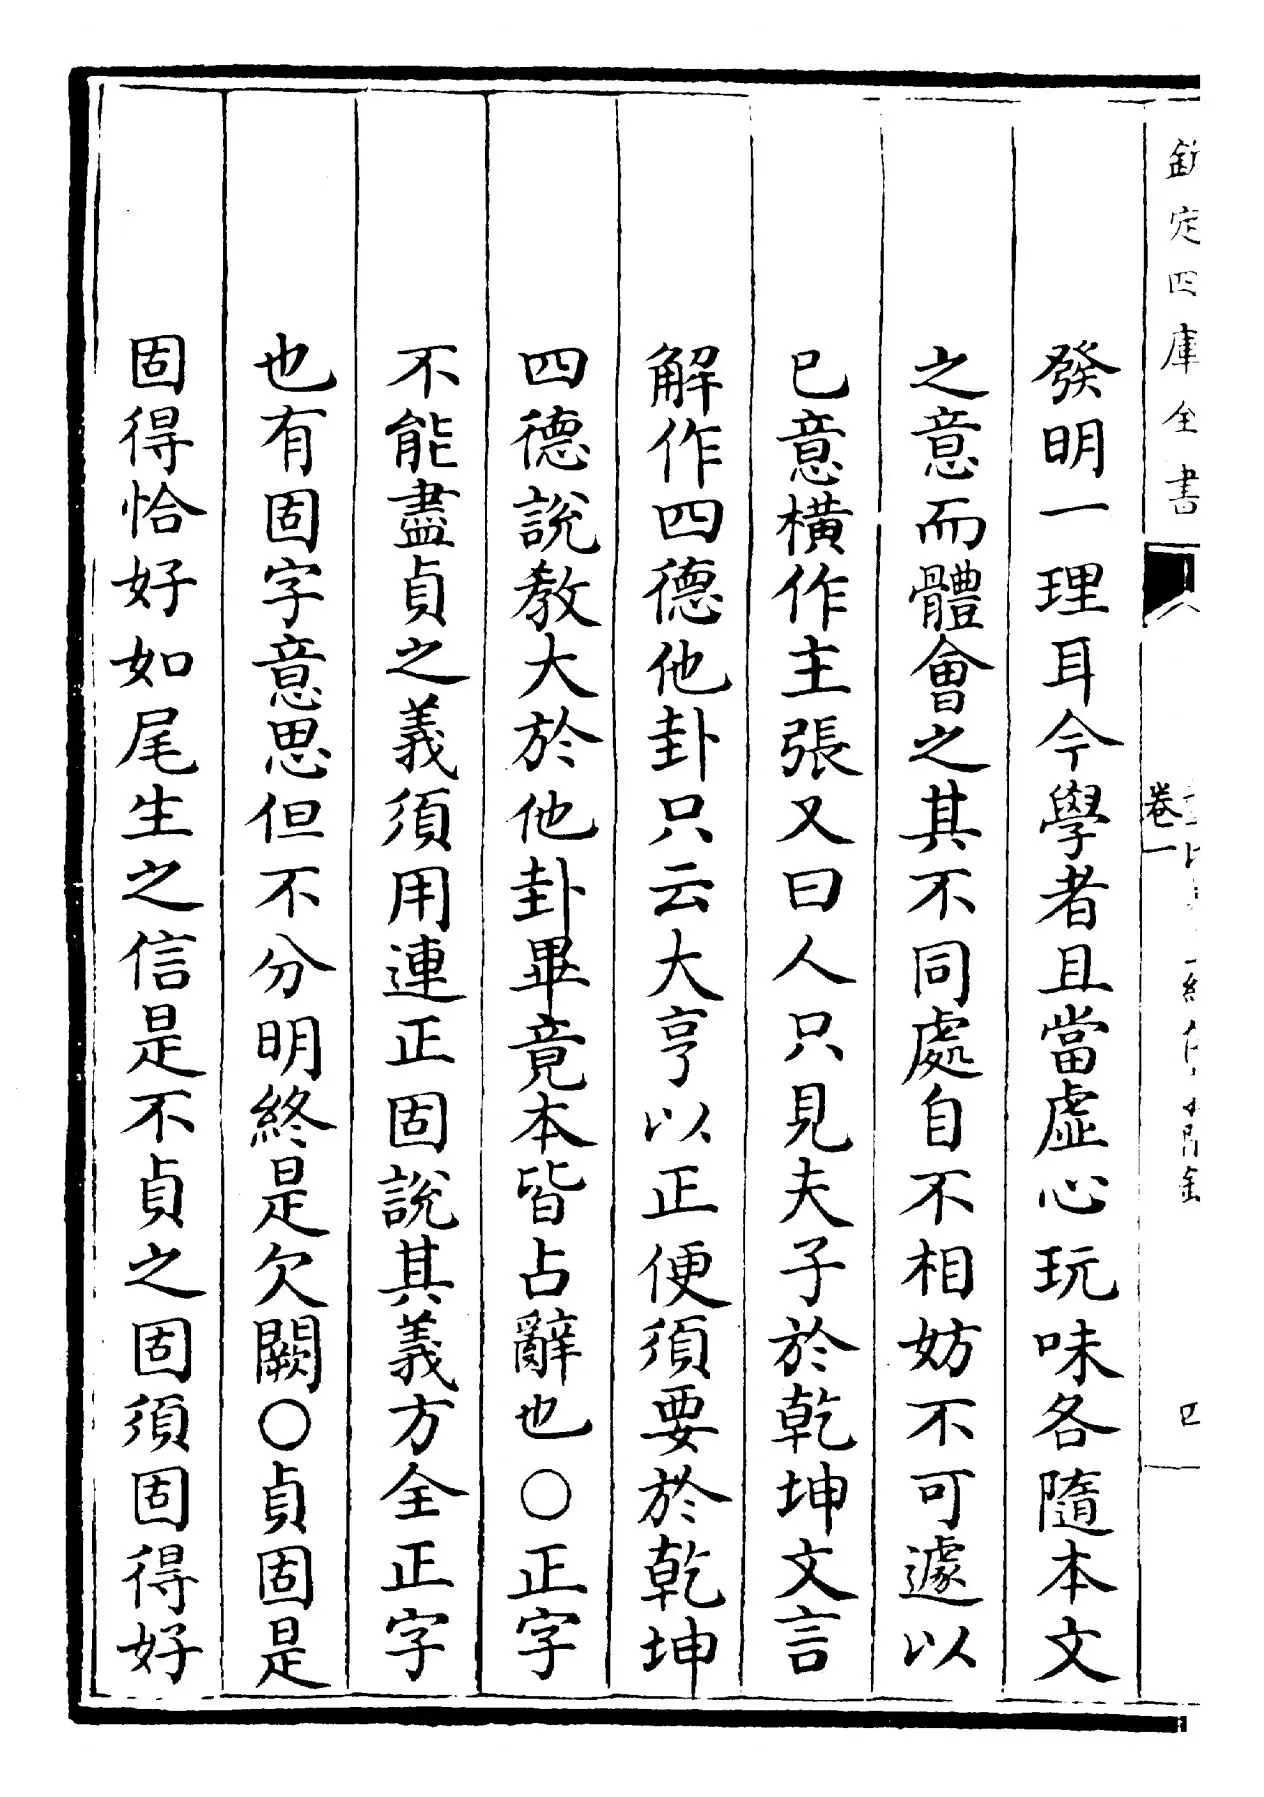 欽定四庫全書
卷一
四
發明一理耳今學者且當虛心玩味各隨本文
之意而體會之其不同處自不相妨不可遽以
已意橫作主張又曰人只見夫子於乾坤文言
解作四德他卦只云大亨以正便須要於乾坤
四德說教大於他卦畢竟本皆占辭也○正字
不能盡貞之義須用連正固說其義方全正字
也有固字意思但不分明終是欠闕○貞固是
固得恰好如尾生之信是不貞之固須固得好